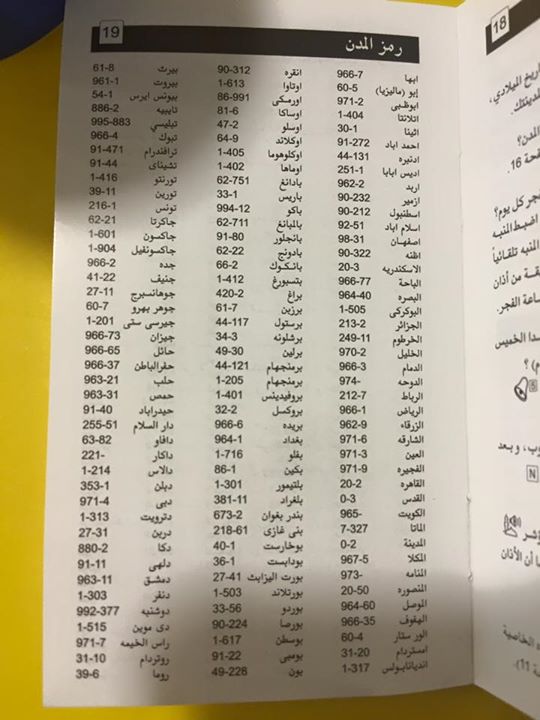 19
رمز المدن
ابها 966-7
إبو (ماليزيا) 60-5
ابوظبى 971-2
اتلانتا 1-404
اثينا 30-1
احمد اباد 91-272
ادنبره 44-131
اديس ابابا 251-1
اربد 962-2
ازمير 90-232
اسطنبول 90-212
اسلام اباد 92-51
اصفهان 98-31
اظنه 90-322
الاسكندريه 20-3
الباحة 966-77
البصره 964-40
البوكركى 1-505
الجزائر 213-2
الخرطوم 249-11
الخليل 970-2
الدمام 966-3
الدوحه 974-
الرباط 212-7
الرياض 966-1
الزرقاء 962-9
الشارقه 971-6
العين 971-3
الفجيره 971-9
القاهره 20-2
القدس 0-3
الكويت 965-
الماتا 7-327
المدينة 0-2
المكلا 967-5
المنامه 973-
المنصوره 20-50
الموصل 964-60
الهفوف 966-35
الور ستار 60-4
امستردام 31-20
انديانابولس 1-317
انقره 90-312
اوتاوا 1-613
اورمكى 86-991
اوساكا 81-6
اوسلو 47-2
اوكلاند 64-9
اوكلوهوما 1-405
اوماها 1-402
بادانغ 62-751
باريس 33-1
باكو 994-12
بالمبانغ 62-711
بانجلور 91-80
باندونج 62-22
بانكوك 66-2
بتسبورغ 1-412
براغ 420-2
برزبن 61-7
برستول 44-117
برشلونه 34-3
برلين 49-30
برمنجهام 44-121
برمنجهام 1-205
بروفيدينس 1-401
بروكسل 32-2
بريده 966-6
بغداد 964-1
بفلو 1-716
بكين 86-1
بلتيمور 1-301
بلغراد 381-11
بندر بغوان 673-2
بنى غازى 218-61
بوخارست 40-1
بودابست 36-1
بورت اليزابث 27-41
بورتلاند 1-503
بوردو 33-56
بورصا 90-224
بوسطن 1-617
بومبى 91-22
بون 49-228
بيرث 61-8
بيروت 961-1
بيونس ايرس 54-1
تايبيه 886-2
تبليسي 995-883
تبوك 966-4
ترافندرام 91-471
تشيناى 91-44
تورنتو 1-416
تورين 39-11
تونس 216-1
جاكرتا 62-21
جاكسون 1-601
جاكسونفيل 1-904
جده 966-2
جنيف 41-22
جوهانسبرج 27-11
جوهر بهرو 60-7
جيرسى ستى 1-201
جيزان 966-73
حائل 966-65
حفرالباطن 966-37
حلب 963-21
حمص 963-31
حيدراباد 91-40
دار السلام 255-51
دافاو 63-82
داكار 221-
دالاس 1-214
دبلن 353-1
دبى 971-4
دترويت 1-313
دربن 27-31
دكا 880-2
دلهى 91-11
دمشق 963-11
دنفر 1-303
دوشنبه 992-377
دى موين 1-515
راس الخيمه 971-7
روتردام 31-10
روما 39-6
18
ريخ الميلادي،
لمدينتك.
المدن؟
فحة 16.
فجر كل يوم؟
اضبط المنبه
المنبه تلقائياً
قة من أذان
ساعة الفجر.
دا الخميس
م) ؟
S
وب، و بعد
N
ؤشر
ا أن الأذان
ه الخاصية
ة 11).